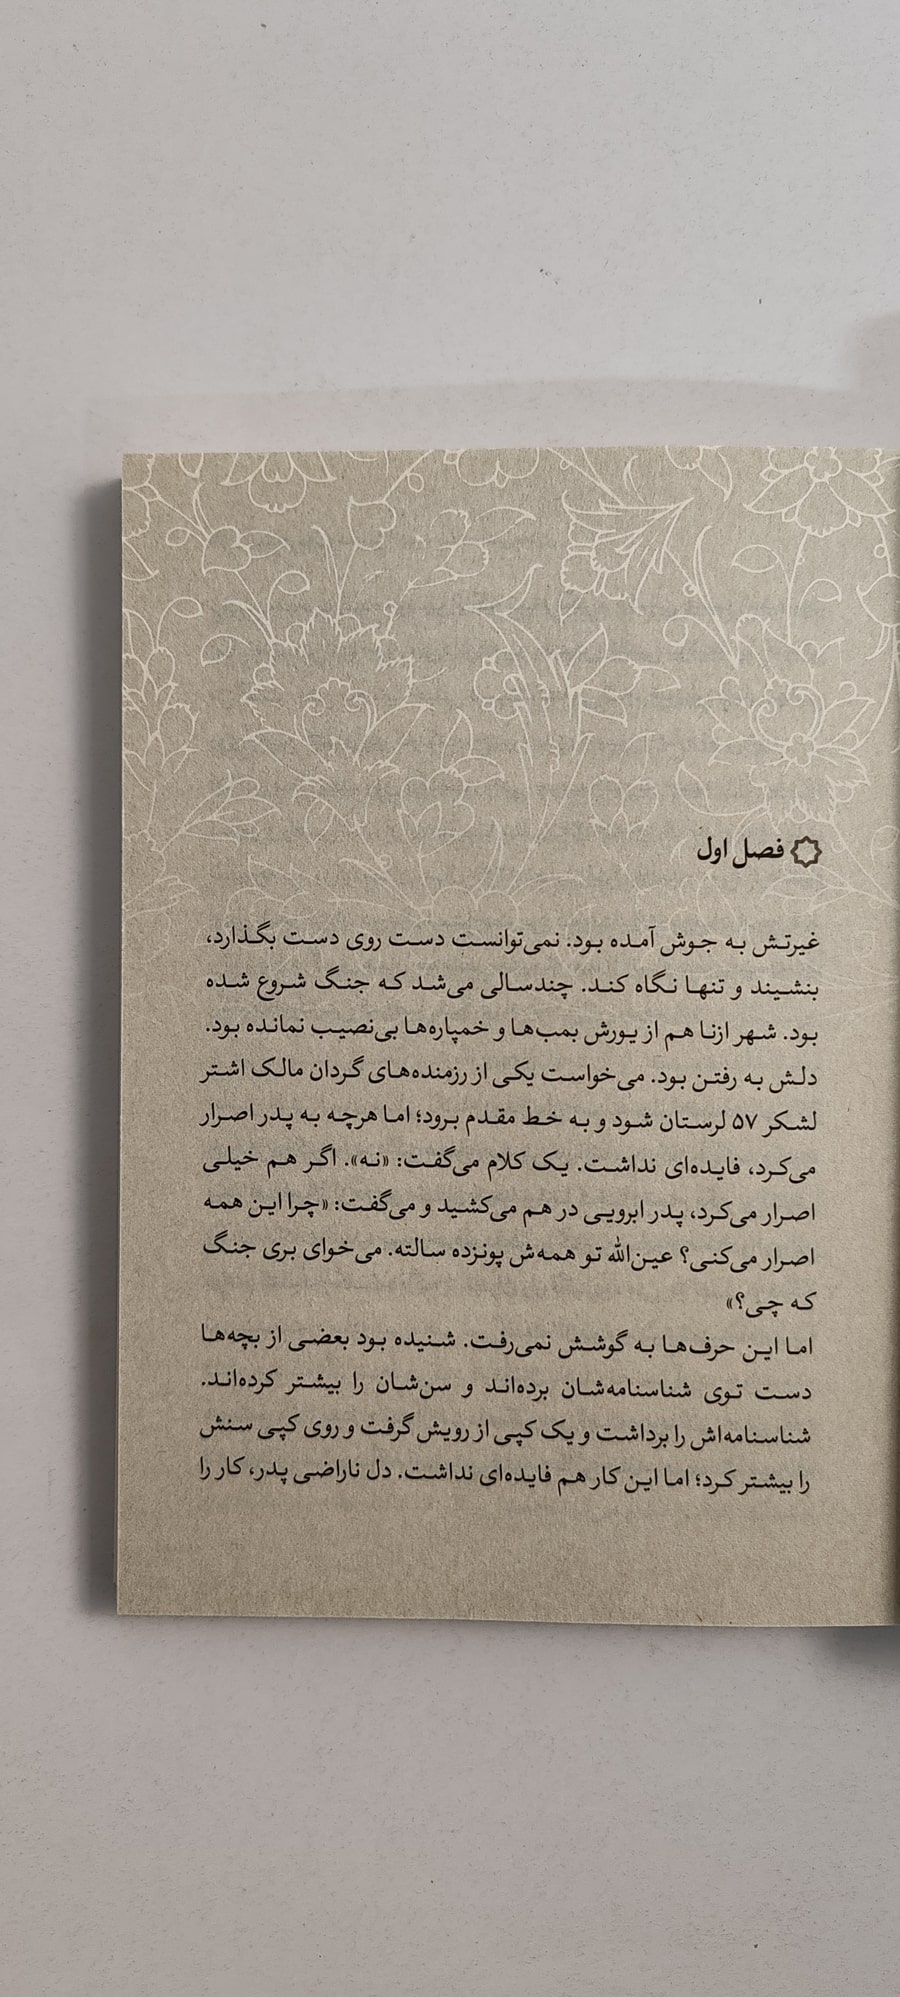 فصل اول
غیرتش به جوش آمده بود. نمی‌توانست دست روی دست بگذارد،
بنشیند و تنها نگاه کند. چندسالی می‌شد که جنگ شروع شده
بود. شهر ازنا هم از یورش بمب‌ها و خمپاره‌ها بی‌نصیب نمانده بود.
دلش به رفتن بود. می‌خواست یکی از رزمنده‌های گردان مالک اشتر
لشکر ۵۷ لرستان شود و به خط مقدم برود؛ اما هرچه به پدر اصرار
می‌کرد، فایده‌ای نداشت. یک کلام می‌گفت: «نه». اگر هم خیلی
اصرار می‌کرد، پدر ابرویی در هم می‌کشید و می‌گفت: «چرا این همه
اصرار می‌کنی؟ عین‌الله تو همه‌ش پونزده سالته. می‌خوای بری جنگ
که چی؟»
اما این حرف‌ها به گوشش نمی‌رفت. شنیده بود بعضی از بچه‌ها
دست توی شناسنامه‌شان برده‌اند و سن‌شان را بیشتر کرده‌اند.
شناسنامه‌اش را برداشت و یک کپی از رویش گرفت و روی کپی سنش
را بیشتر کرد؛ اما این کار هم فایده‌ای نداشت. دل ناراضی پدر، کار را